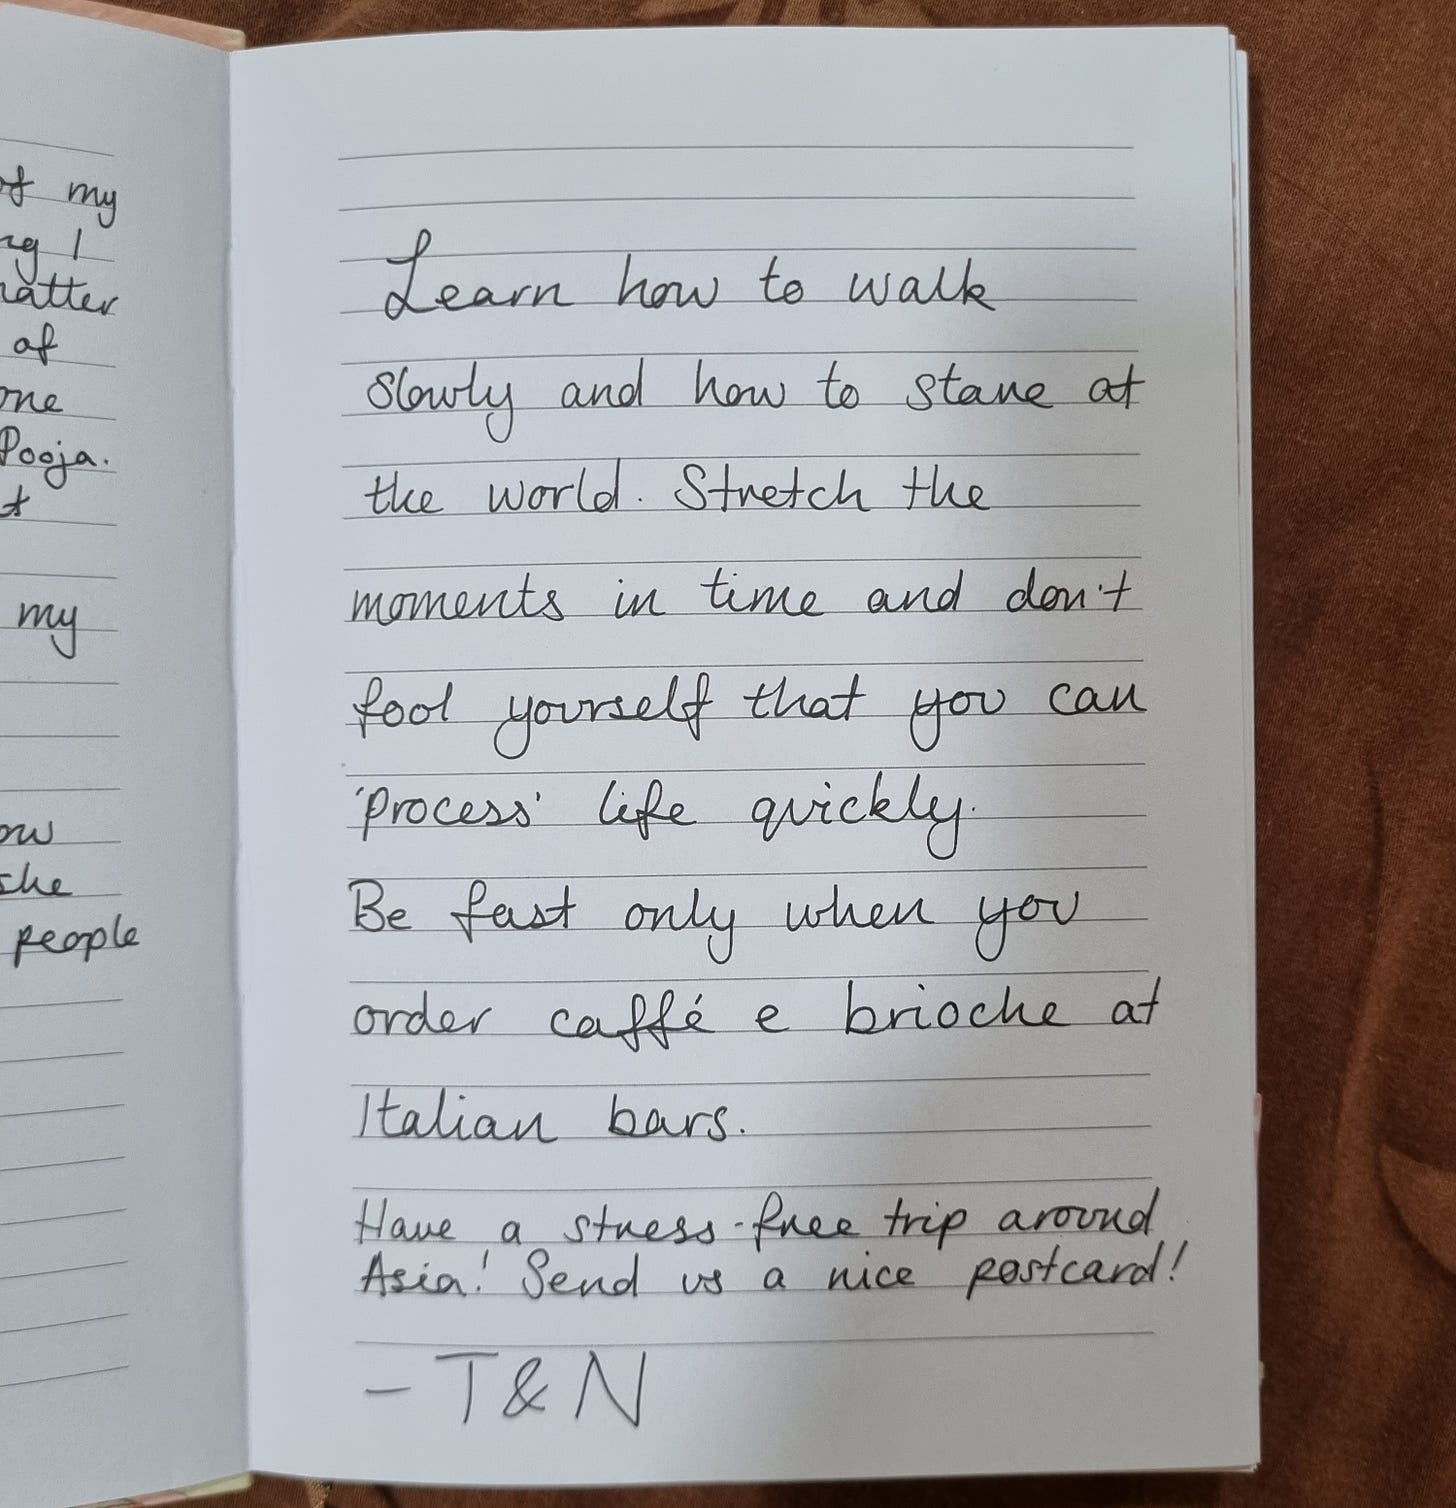 of my
I
of
one
Pooja.
my
she
people
Learn how to walk
slowly and how to stare at
the world. Stretch the
moments in time and don't
fool yourself that you can
'process' life quickly.
Be fast only when you
order caffé e brioche at
Italian bars.
Have a stress-free trip around
Asia! Send us a nice postcard!
- T & N